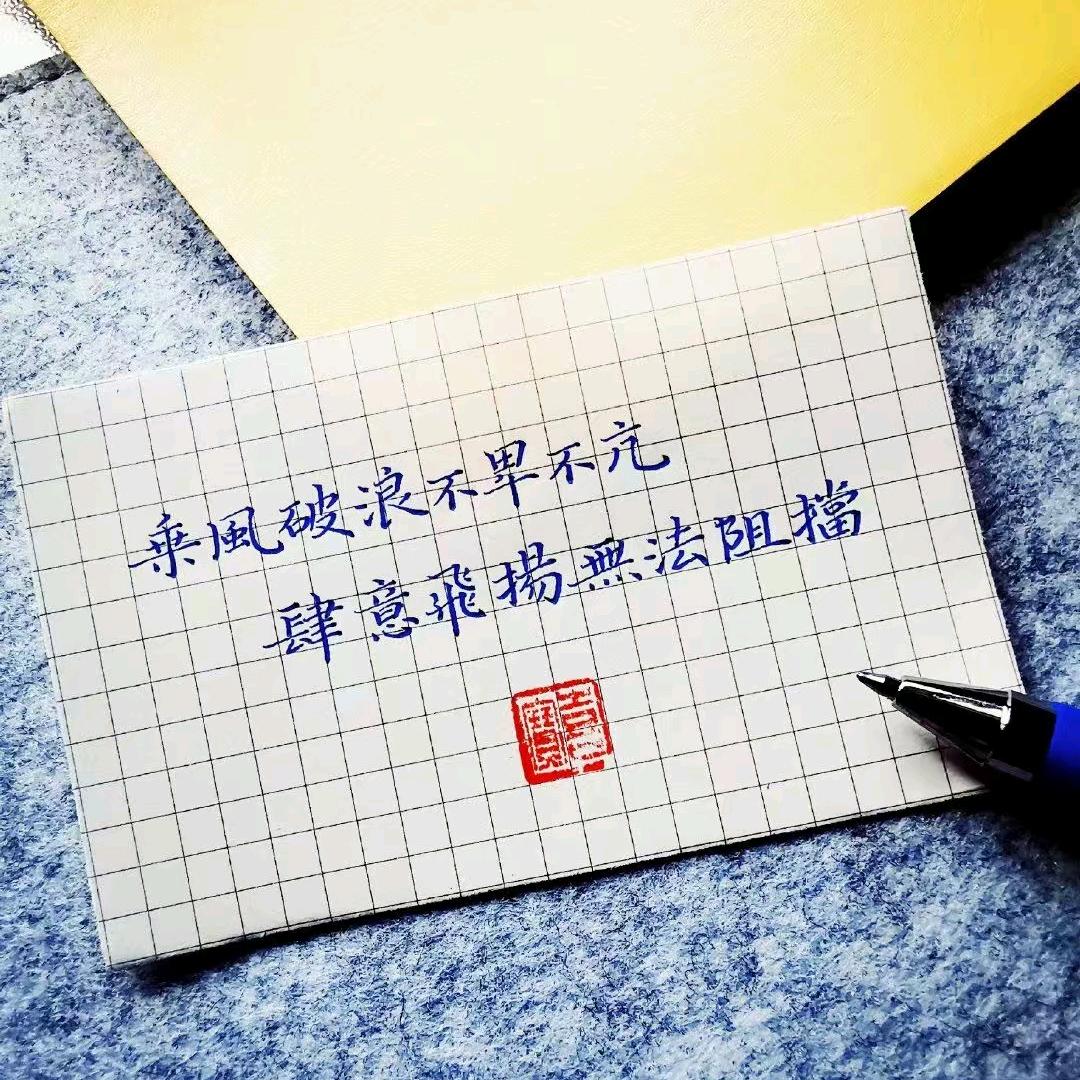 乘風破浪不卑不亢
肆意飛揚無法阻擋